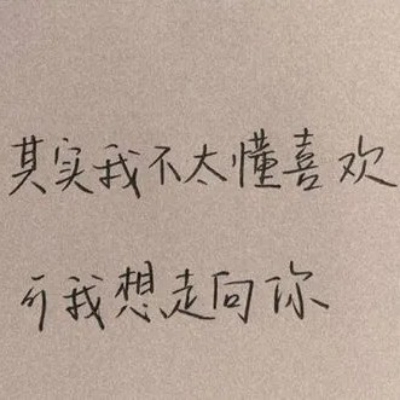 其实我不太懂喜欢
可我想走向你